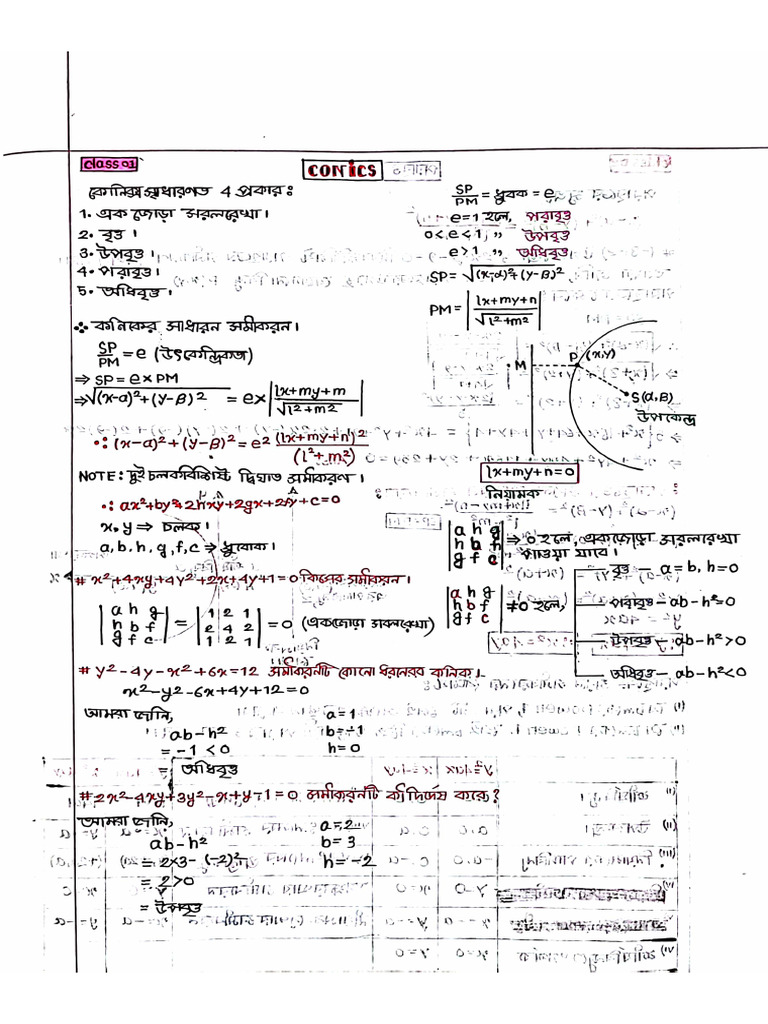 Class 01
CONICS
কনিক সাধারণত 4 প্রকারঃ
1. এক জোড়া সরলরেখা।
2. বৃত্ত।
3. উপবৃত্ত।
4. পরাবৃত্ত।
5. অধিবৃত্ত।
SP/PM = ধ্রুবক = e
e=1 হলে, পরাবৃত্ত
0<e<1 ,, উপবৃত্ত
e>1 ,, অধিবৃত্ত
SP = √(x-α)²+(y-β)²
PM = |lx+my+n / √l²+m²|
কনিকের সাধারন সমীকরন।
SP/PM = e (উৎকেন্দ্রিকতা)
⇒ SP = e×PM
⇒ √(x-α)²+(y-β)² = e×|lx+my+m / √l²+m²|
∴ (x-α)²+(y-β)² = e² (lx+my+n)² / (l²+m²)
M
P (x,y)
S(α,β)
উপকেন্দ্র
lx+my+n=0
নিয়ামক
NOTE: দুই চলকবিশিষ্ট দ্বিঘাত সমীকরণ।
∴ ax²+by²+2hxy+2gx+2fy+c=0
x,y ⇒ চলক।
a,b,h,g,f,c ⇒ ধ্রুবোক।
|a h g|
|h b f| ⇒ 0 হলে, একজোড়া সরলরেখা
|g f c| পাওয়া যাবে।
|a h g|
|h b f| ≠0 হলে,
|g f c|
বৃত্ত – a=b, h=0
পরাবৃত্ত – ab-h²=0
উপবৃত্ত – ab-h²>0
অধিবৃত্ত – ab-h²<0
# x²+4xy+4y²+2x+4y+1=0 কিসের সমীকরন।
|a h g| |1 2 1|
|h b f| = |2 4 2| = 0 (একজোড়া সরলরেখা)
|g f c| |1 2 1|
# y²-4y-x²+6x=12 সমীকরনটি কোনো ধরনের কনিক।
x²-y²-6x+4y+12=0
আমরা জানি,
ab-h²
= -1 < 0
= অধিবৃত্ত
a=1
b=-1
h=0
# 2x²-4xy+3y²-x+y-1=0 সমীকরনটি কী নির্দেশ করে?
আমরা জানি,
ab-h²
= 2×3-(-2)²
= 2>0
= উপবৃত্ত
a=2
b=3
h=-2